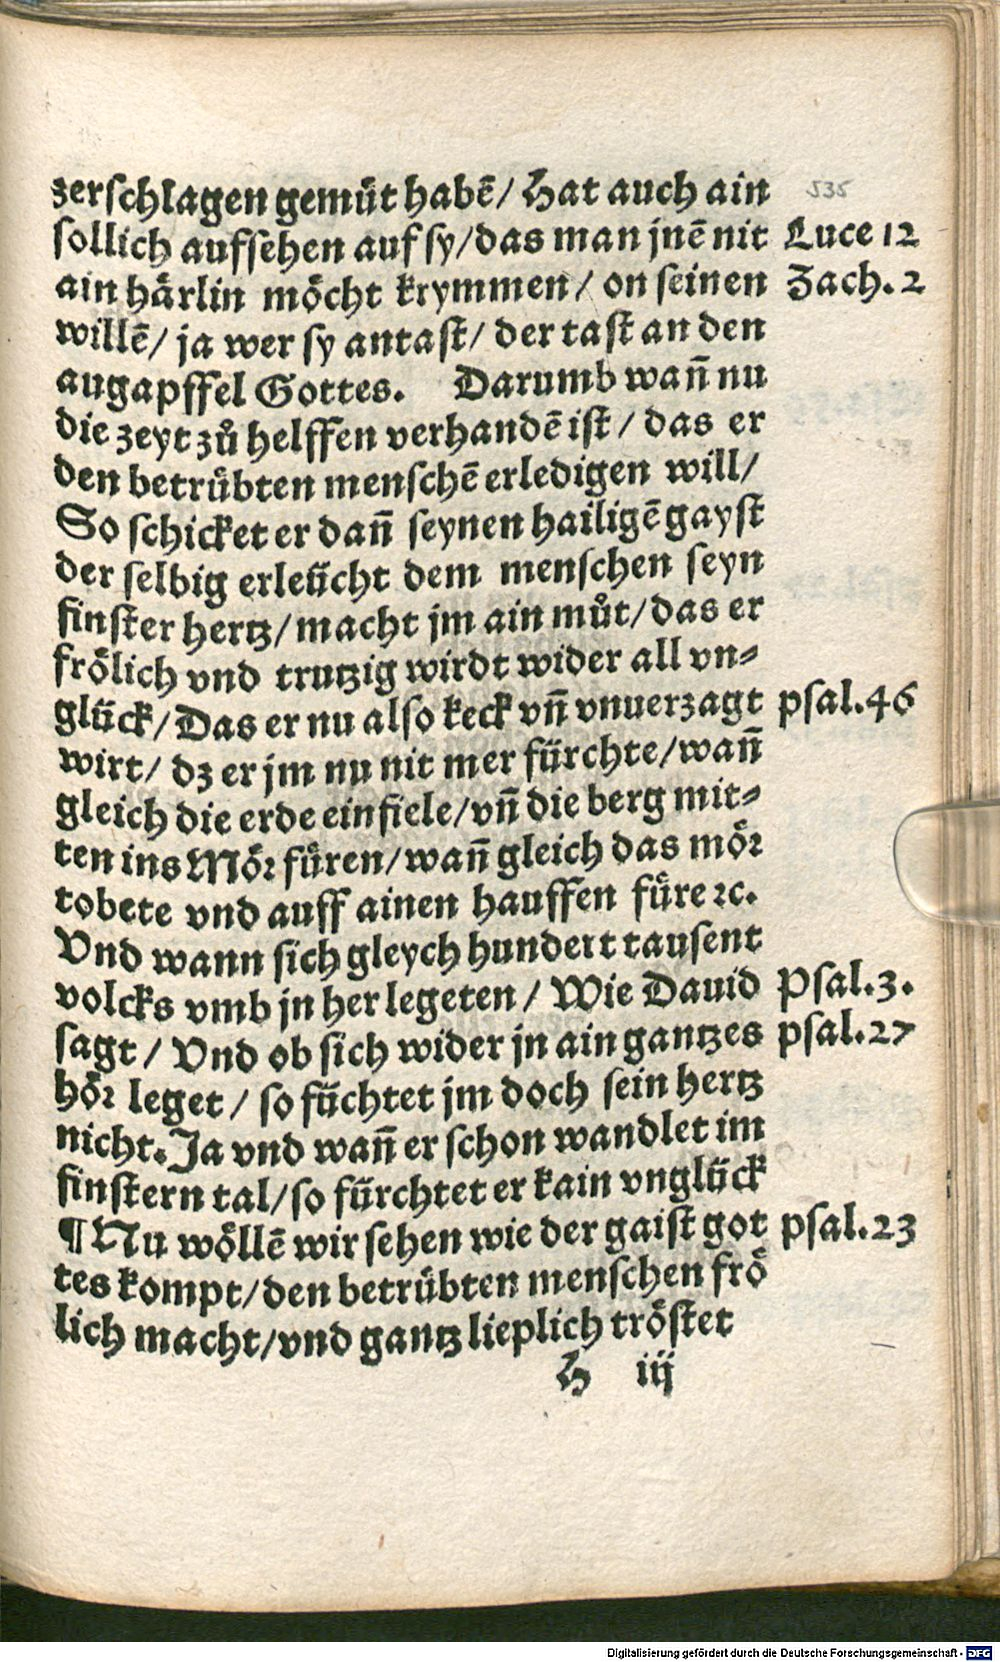 zerschlagen gemuͤt habē/ Hat auch ain
535
sollich aufsehen auf sy/das man jnē nit
Luce 12
ain haͤrlin moͤcht krymmen/ on seinen
Zach. 2
willē/ ja wer sy antast/ der tast an den
augapffel Gottes. Darumb wañ nu
die zeyt zů helffen verhandē ist/ das er
den betruͤbten menschē erledigen will/
So schicket er dañ seynen hailigē gayst
der selbig erleücht dem menschen seyn
finster hertz/macht jm ain můt/das er
froͤlich vnd trutzig wirdt wider all vn⸗
glück/Das er nu also keck vñ vnuerzagt
psal.46
wirt/ dz er jm nu nit mer fürchte/wañ
gleich die erde einfiele/vñ die berg mit⸗
ten ins Moͤꝛ fuͤren/wañ gleich das moͤꝛ
tobete vnd auff ainen hauffen fuͤre ꝛc.
Vnd wann sich gleych hundert tausent
volcks vmb jn her legeten/ Wie Dauid
Psal.3.
sagt/ Vnd ob sich wider jn ain gantzes
psal.27
hoͤꝛ leget/ so füchtet jm doch sein hertz
nicht. Ja vnd wañ er schon wandlet im
finstern tal/so fürchtet er kain vnglück
¶ Nu woͤllē wir sehen wie der gaist got
psal.23
tes kompt/den betruͤbten menschen froͤ
lich macht/vnd gantz lieplich troͤstet
H iij
Digitalisierung gefördert durch die Deutsche Forschungsgemeinschaft - DFG